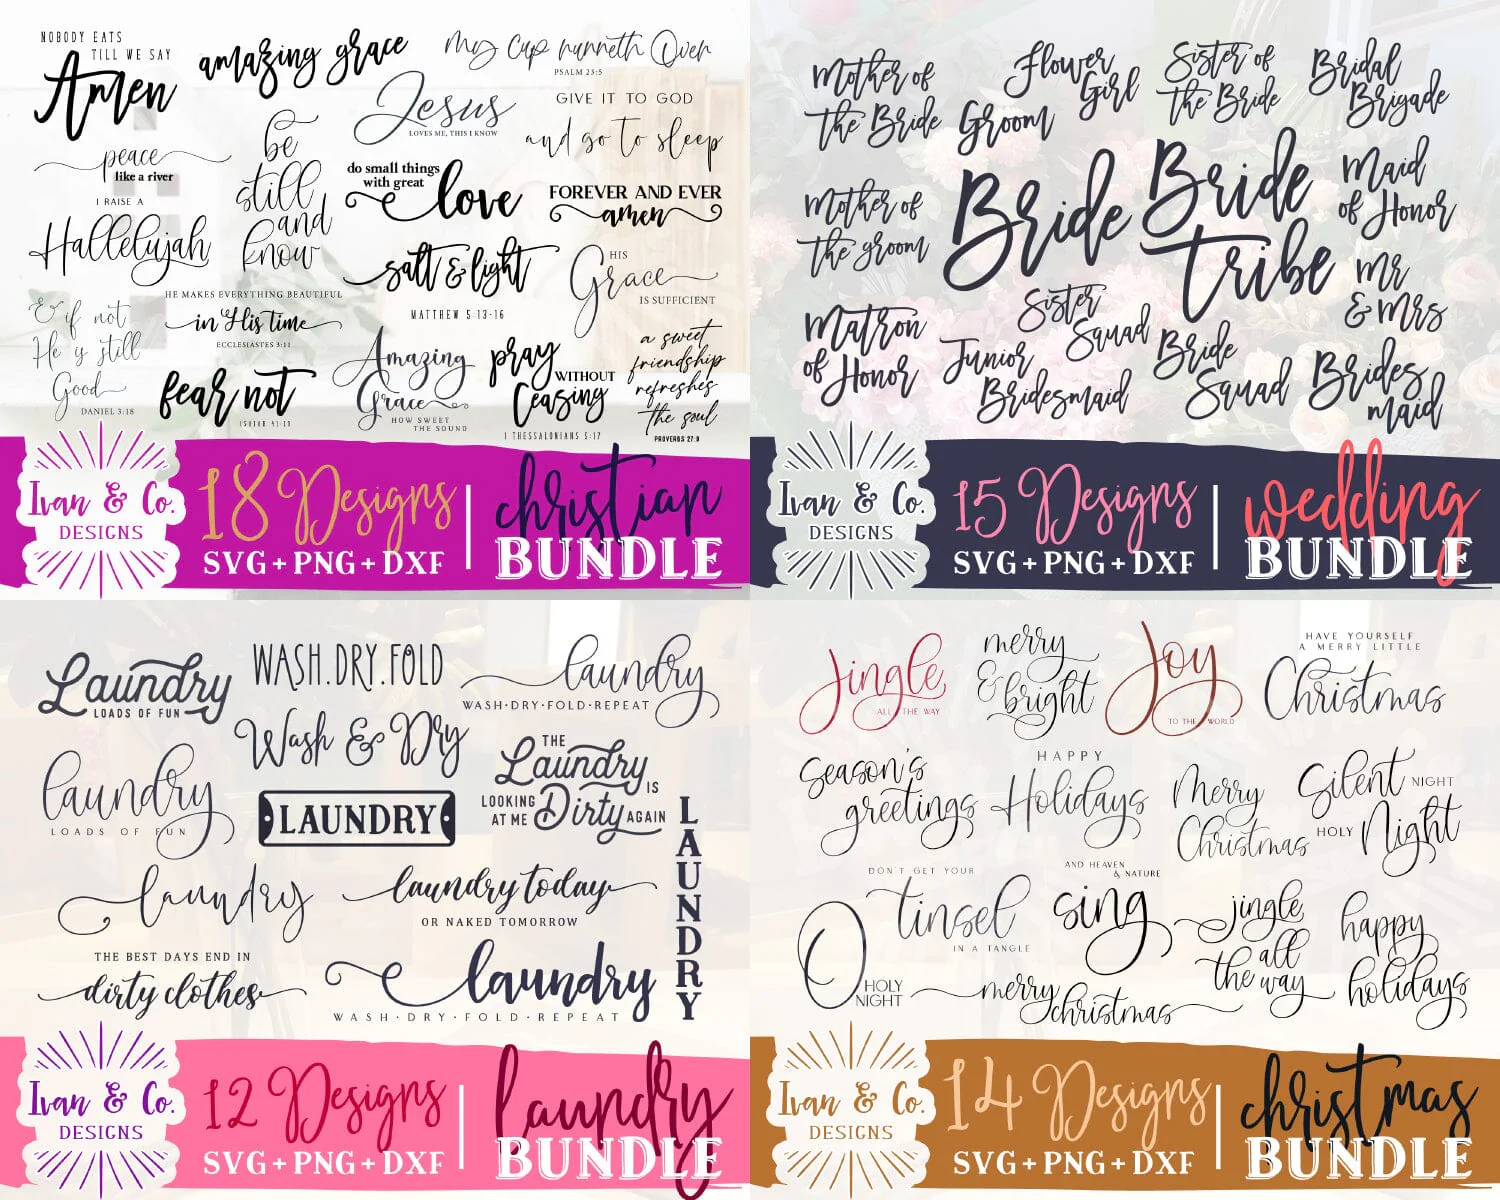 NOBODY EATS
TILL WE SAY
Amen
amazing grace
My Cup runneth Over
PSALM 23:5
Jesus
LOVES ME, THIS I KNOW
GIVE IT TO GOD
and go to sleep
peace
like a river
be
still
and
know
do small things
with great
love
FOREVER AND EVER
amen
I RAISE A
Hallelujah
salt & light
MATTHEW 5:13-16
HIS
Grace
IS SUFFICIENT
& if not
He is still
Good
DANIEL 3:18
HE MAKES EVERYTHING BEAUTIFUL
in His time
ECCLESIASTES 3:11
fear not
ISAIAH 41:10
Amazing
Grace
HOW SWEET
THE SOUND
pray
WITHOUT
Ceasing
1 THESSALONIANS 5:17
a sweet
friendship
refreshes
the soul
PROVERBS 27:9
Ivan & Co.
DESIGNS
18 Designs
SVG+PNG+DXF
christian
BUNDLE
Mother of
the Bride
Flower
Girl
Groom
Sister of
the Bride
Bridal
Brigade
Mother of
the groom
Bride
Bride
tribe
Maid
of Honor
Mr
& Mrs
Matron
of Honor
Sister
Squad
Junior
Bridesmaid
Bride
Squad
Brides
maid
Ivan & Co.
DESIGNS
15 Designs
SVG+PNG+DXF
wedding
BUNDLE
Laundry
LOADS OF FUN
WASH.DRY.FOLD
laundry
WASH·DRY·FOLD·REPEAT
Wash & Dry
laundry
LOADS OF FUN
THE
Laundry
IS
LOOKING
AT ME
Dirty
AGAIN
LAUNDRY
LAUNDRY
laundry
laundry today
OR NAKED TOMORROW
THE BEST DAYS END IN
dirty clothes
laundry
WASH·DRY·FOLD·REPEAT
Ivan & Co.
DESIGNS
12 Designs
SVG+PNG+DXF
laundry
BUNDLE
Jingle
ALL THE WAY
merry
& bright
Joy
TO THE WORLD
HAVE YOURSELF
A MERRY LITTLE
Christmas
Season's
greetings
HAPPY
Holidays
Merry
Christmas
Silent NIGHT
HOLY Night
DON'T GET YOUR
tinsel
IN A TANGLE
AND HEAVEN
& NATURE
sing
jingle
all
the way
happy
holidays
O HOLY
NIGHT
merry
christmas
Ivan & Co.
DESIGNS
14 Designs
SVG+PNG+DXF
christmas
BUNDLE